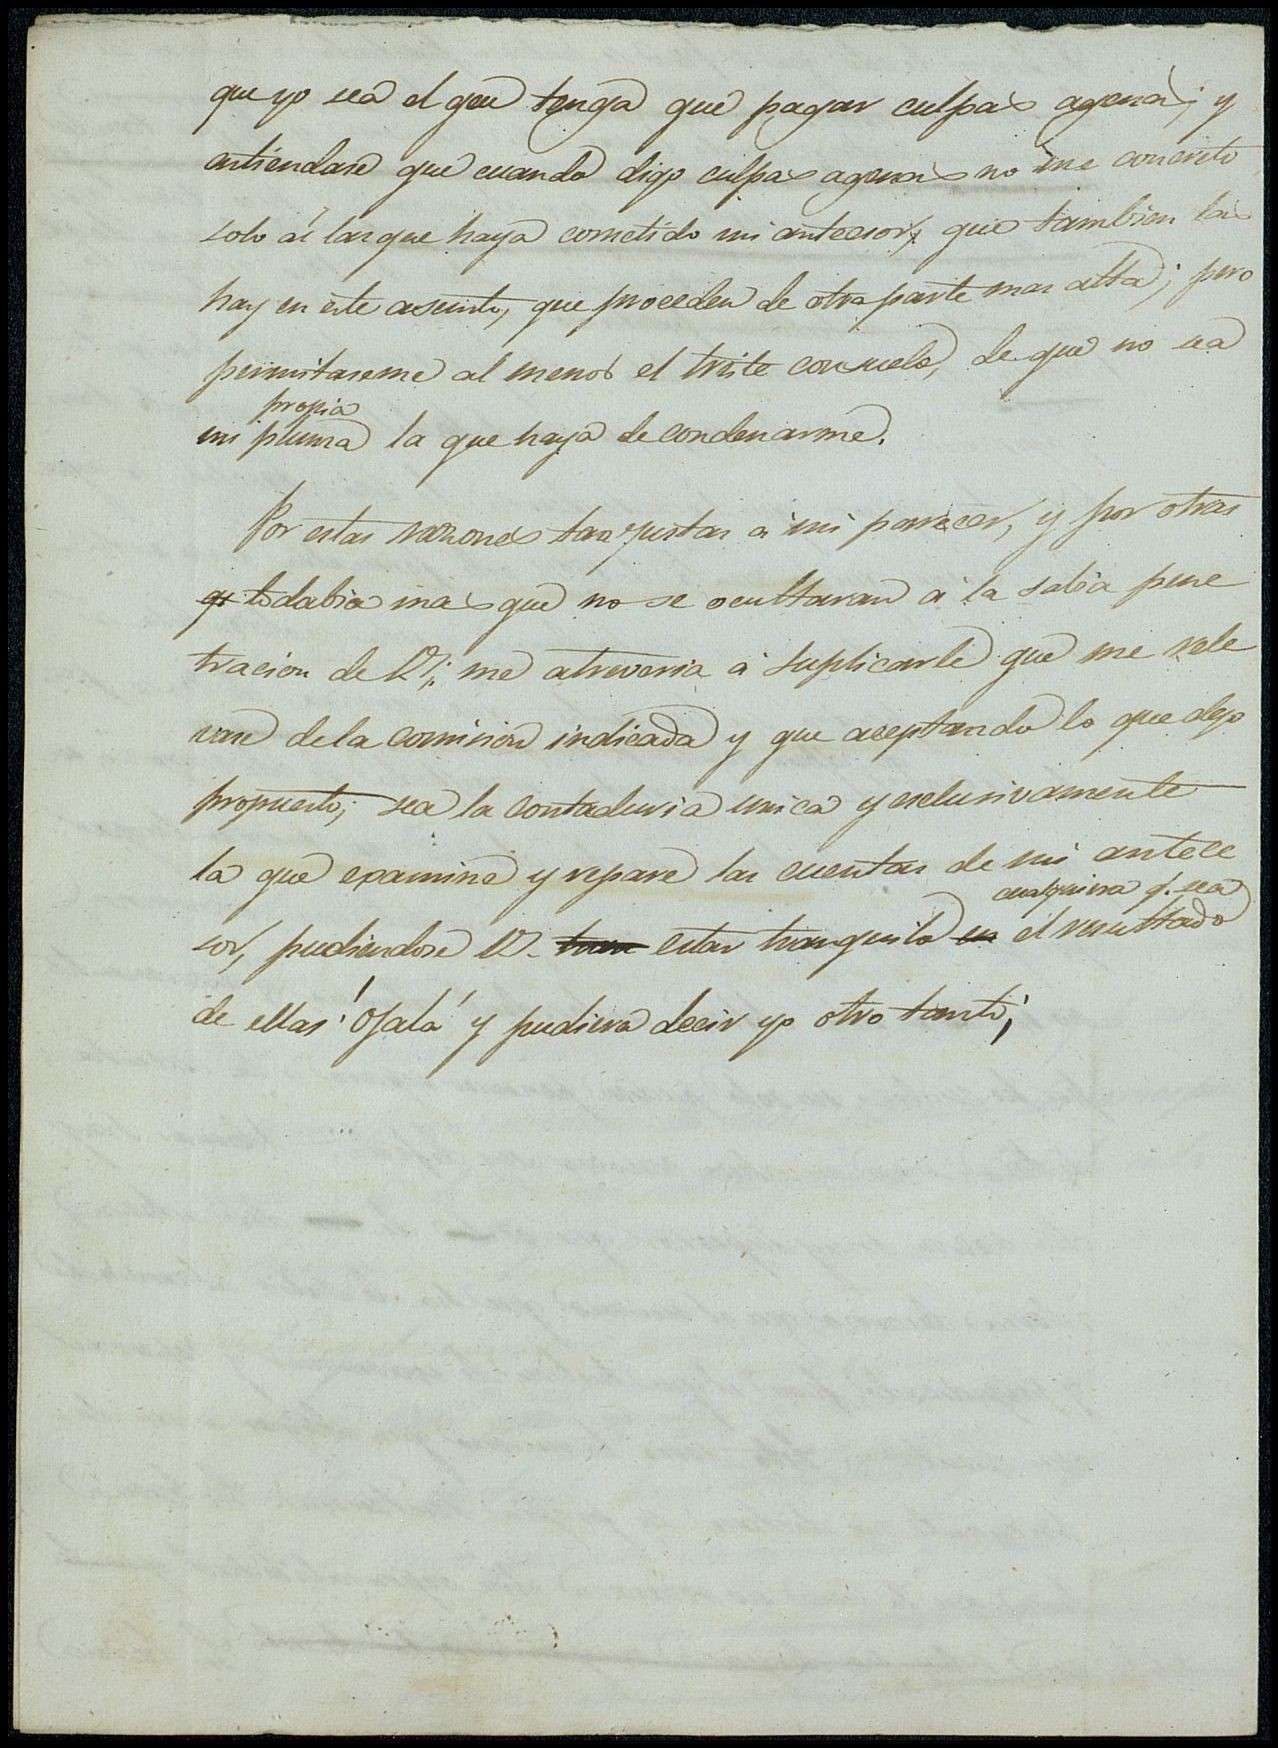 que yo sea el que tenga que pagar culpas agenas; y
entiendase que cuando digo culpas agenas no me concreto
solo á las que haya cometido mi antecesor, que tambien las
hay en este asunto, que proceden de otra parte mas alta; pero
permitaseme al menos el triste consuelo, de que no sea
propia
mi pluma la que haya de condenarme.
Por estas razones tan justas á mi parecer, y por otras
q.e todabia mas que no se ocultaran á la sabia pene
tracion de V.; me atreveria á suplicarle que me rele
vase de la comision indicada y que aceptando lo que dejo
propuesto; sea la contaduria unica y esclusivamente
la que examine y repare las cuentas de mi antece
cualquiera q. sea
sor, pudiendose V. estar tranquilo en el resultado
de ellas. ¡Ojalá y pudiera decir yo otro tanto!